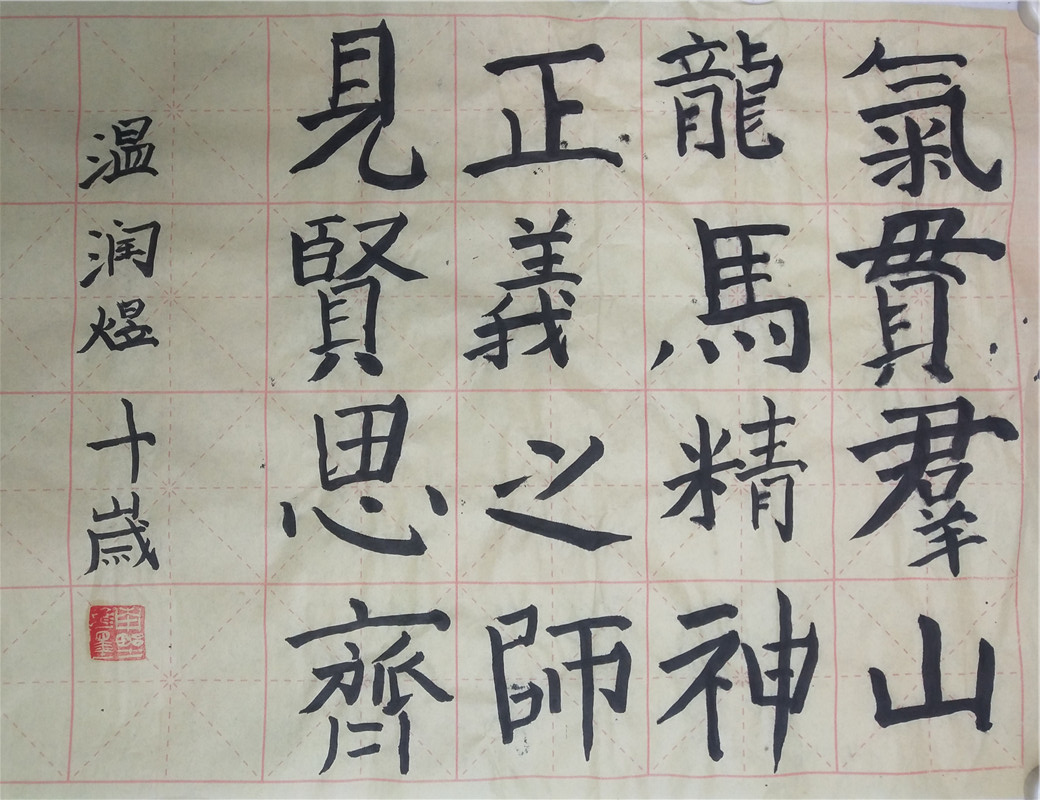 氣貫羣山
龍馬精神
正義之師
見賢思齊
温润煜十歳